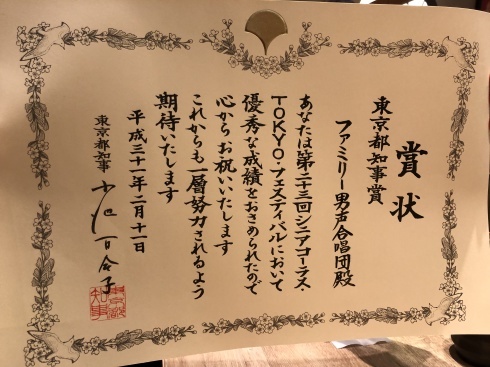 賞状
東京都知事賞
ファミリー男声合唱団殿
あなたは第二十三回シニアコーラス・
TOKYO・フェスティバルにおいて
優秀な成績をおさめられたので
心からお祝いいたします
これからも一層努力されるよう
期待いたします
平成三十一年二月十一日
東京都知事 小池百合子